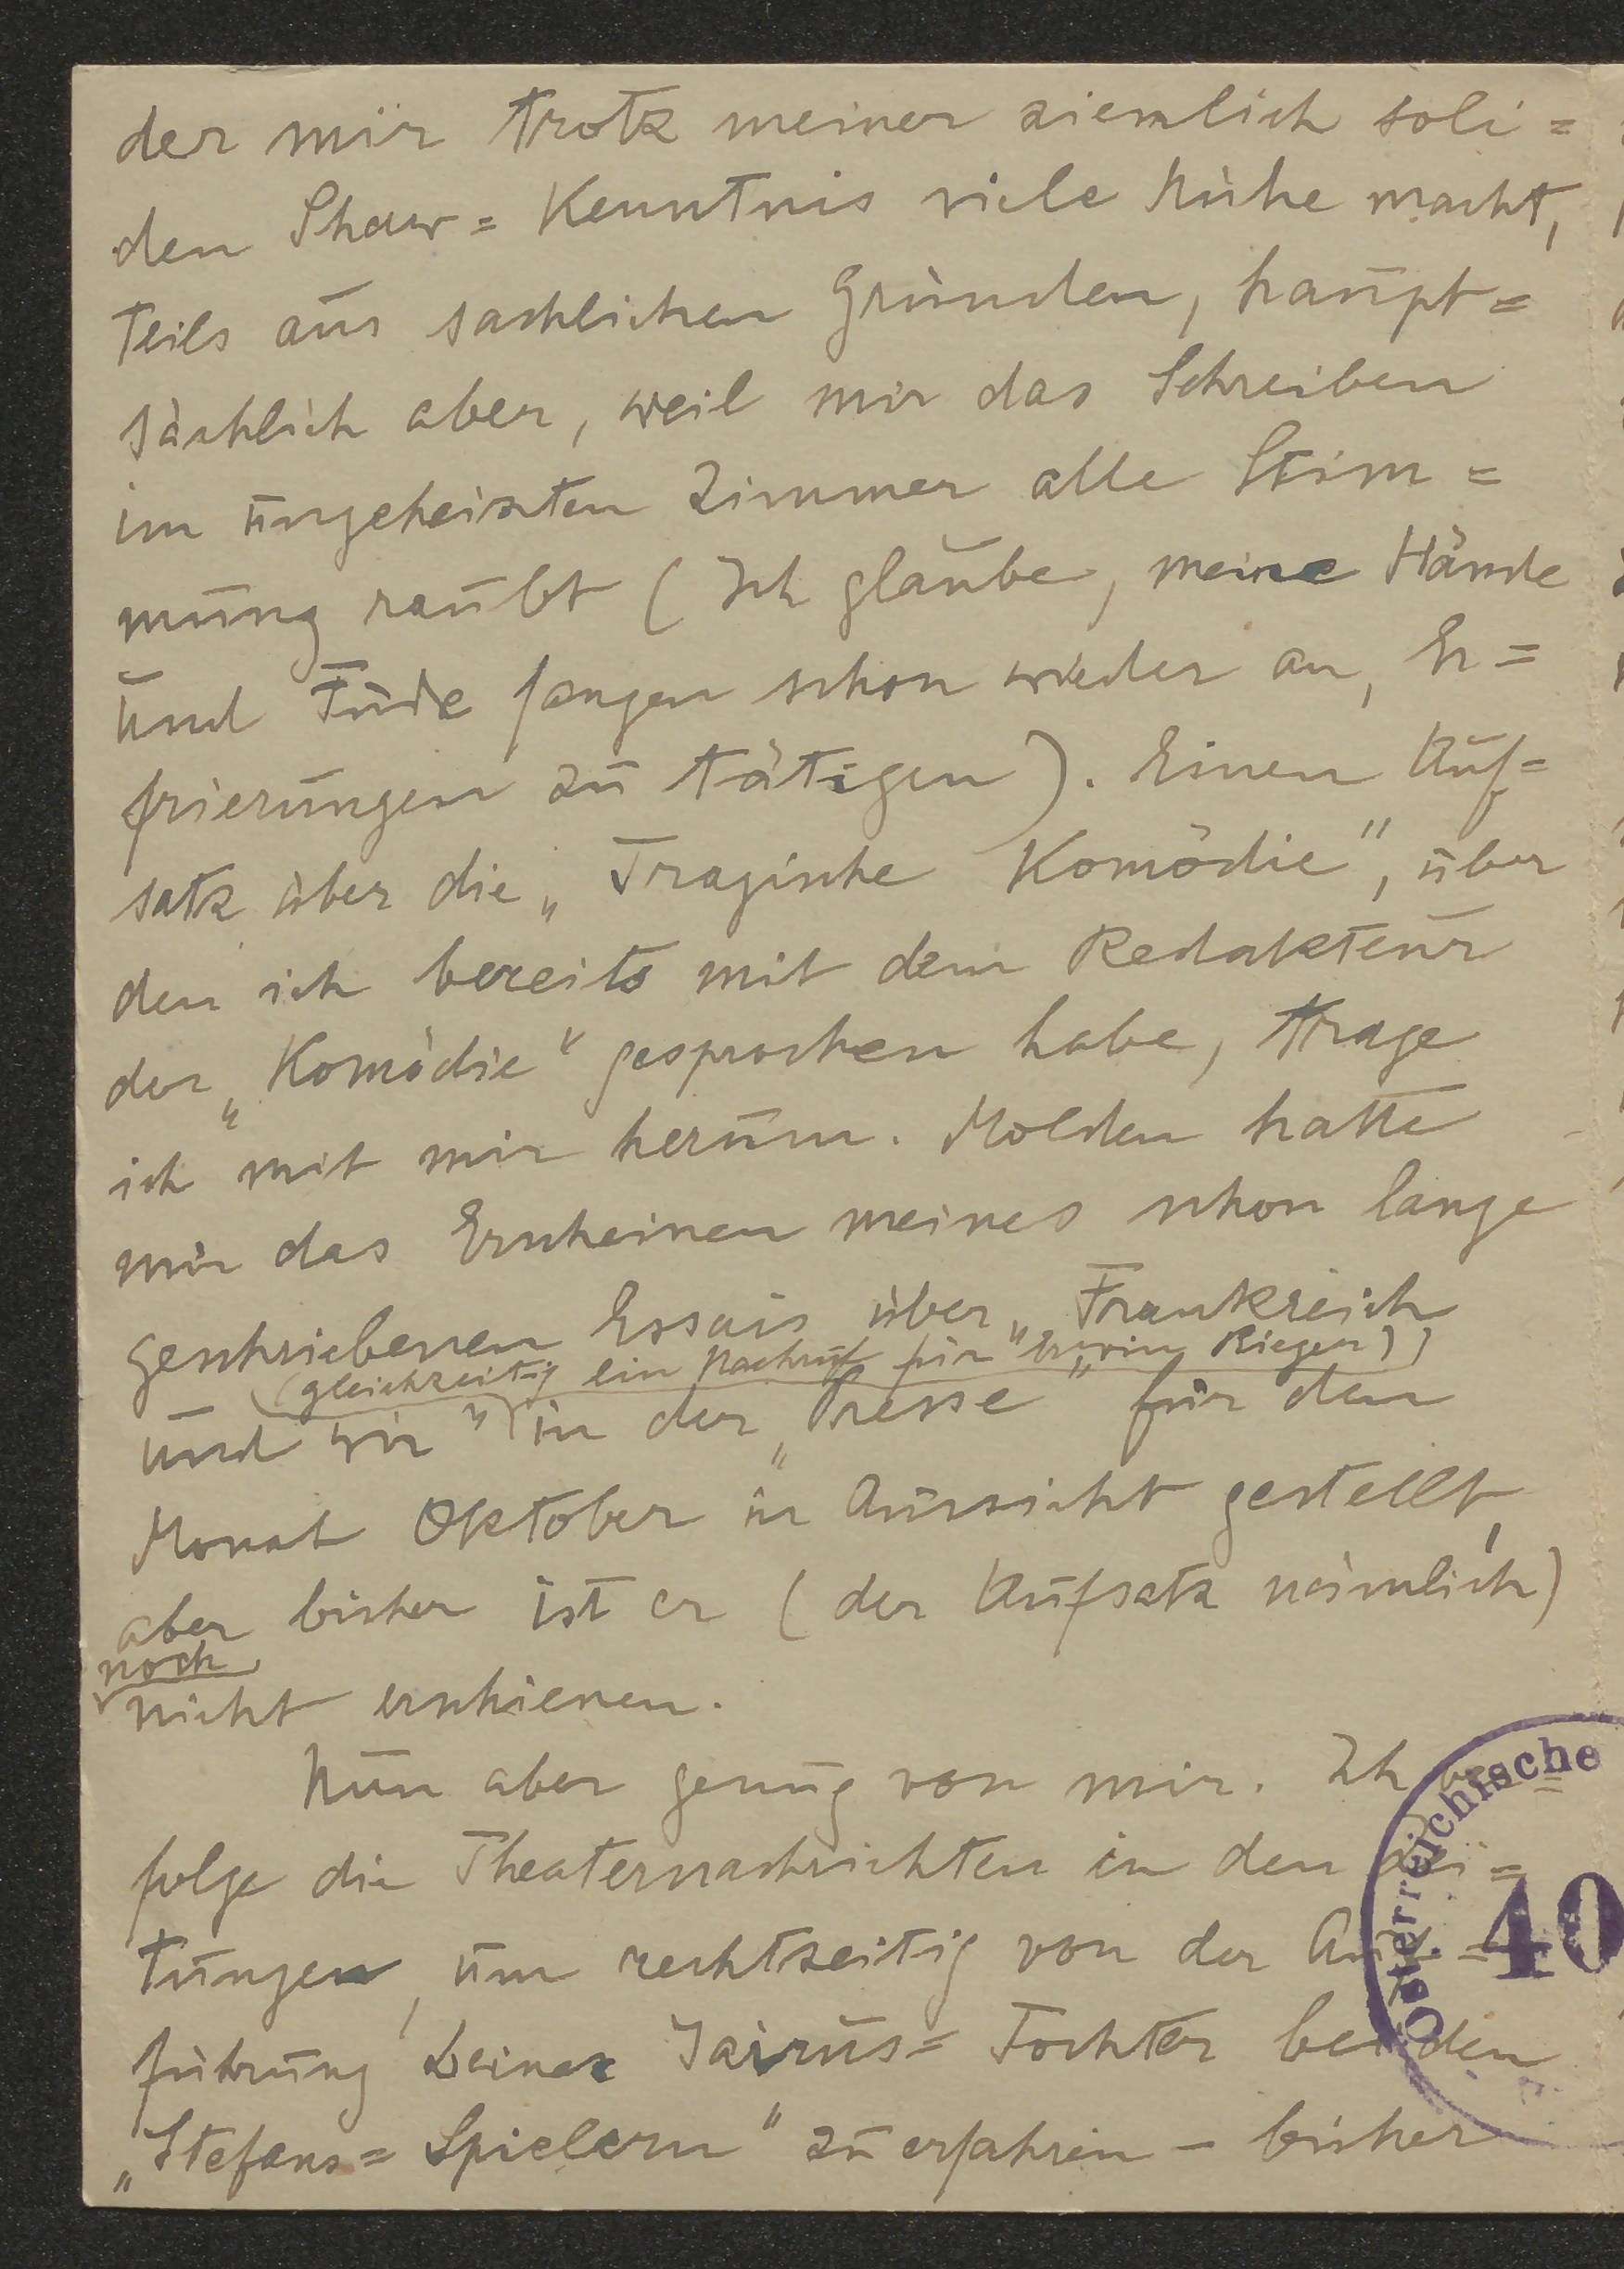 der mir trotz meiner ziemlich soli=
den Shaw=Kenntnis viele Mühe macht,
teils aus sachlichen Gründen, haupt=
sächlich aber, weil mir das Schreiben
im ungeheizten Zimmer alle Stim=
mung raubt (Ich glaube, meine Hände
und Füße fangen schon wieder an, Er=
frierungen zu tätigen). Einen Auf=
satz über die „Tragische Komödie", über
den ich bereits mit dem Redakteur
der „Komödie" gesprochen habe, trage
ich mit mir herum. Molden hatte
mir das Erscheinen meines schon lange
geschriebenen Essais über „Frankreich
(gleichzeitig ein Nachruf für „Erwin Rieger))
und wir" in der „Presse" für den
Monat Oktober in Aussicht gestellt,
aber bisher ist er (der Aufsatz nämlich)
noch
nicht erschienen.
Nun aber genug von mir. Ich ver=
folge die Theaternachrichten in den Zei=
tungen, um rechtzeitig von der Auf=
führung Deiner Jairus=Tochter bei den
„Stefans=Spielern" zu erfahren – bisher
Österreichische
40